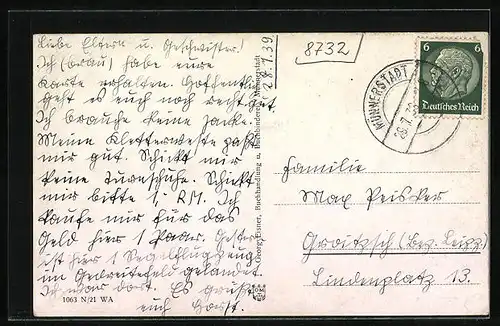 Liebe Eltern u. Geschwister!
Ich habe eure
Karte erhalten. Hoffentlich
geht es euch noch recht gut.
Ich brauche keine Jacke.
Meine Kletterweste paßt
mir gut. Schickt mir
keine Turnschuhe. Schickt
mir bitte 1,- RM. Ich
kaufe mir für das
Geld hier 1 Paar. Gestern
ist hier 1 Segelflugzeug
im Getreidefeld gelandet.
Ich war dort. Es grüßt
euch Horst.
1063 N/21 WA
28.7.39
Georg Eisner, Buchhandlung u. Buchbinderei, Münnerstadt
8732
MÜNNERSTADT
28.7.39
6 6
Deutsches Reich
Familie
Max Peisker
Groitzsch (Bez. Leipz.)
Lindenplatz 13.